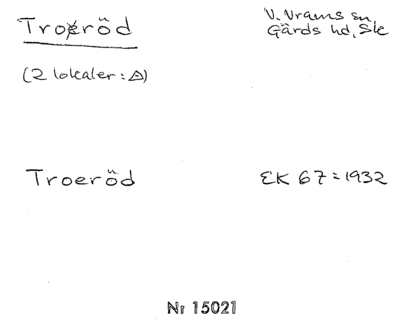 Troeröd
V. Vrams sn,
Gärds hd, Sk
(2 lokaler: △)
Troeröd
EK 67 = 1932
Nr 15021